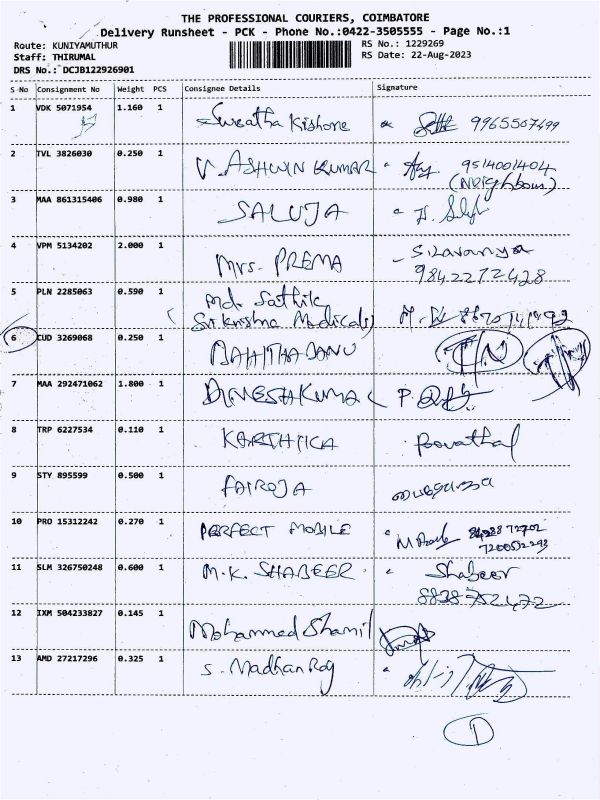 THE PROFESSIONAL COURIERS, COIMBATORE
Delivery Runsheet - PCK - Phone No.:0422-3505555 - Page No.:1
Route: KUNIYAMUTHUR RS No.: 1229269
Staff: THIRUMAL RS Date: 22-Aug-2023
DRS No.: DCJB122926901
S No Consignment No Weight PCS Consignee Details Signature
1 VDK 5071954 1.160 1 Sweatha Kishore 9965507499
2 TVL 3826030 0.250 1 V. ASHWIN KUMAR 9514001404
(Neighbour)
3 MAA 861315406 0.980 1 SALUJA
4 VPM 5134202 2.000 1 Mrs. PREMA S. Lavanya
9842272428
5 PLN 2285063 0.590 1 Md. Sathik
(Sri Krishna Medicals)
6 CUD 3269068 0.250 1
7 MAA 292471062 1.800 1 DINESHKUMAR
8 TRP 6227534 0.110 1 KARTHICA Poovathal
9 STY 895599 0.500 1 FAIROJA
10 PRO 15312242 0.270 1 PERFECT MOBILE
11 SLM 326750248 0.600 1 M.K. SHABEER Shabeer
8838752472
12 IXM 504233827 0.145 1 Mohammed Shamil
13 AMD 27217296 0.325 1 S. Madhan Roy